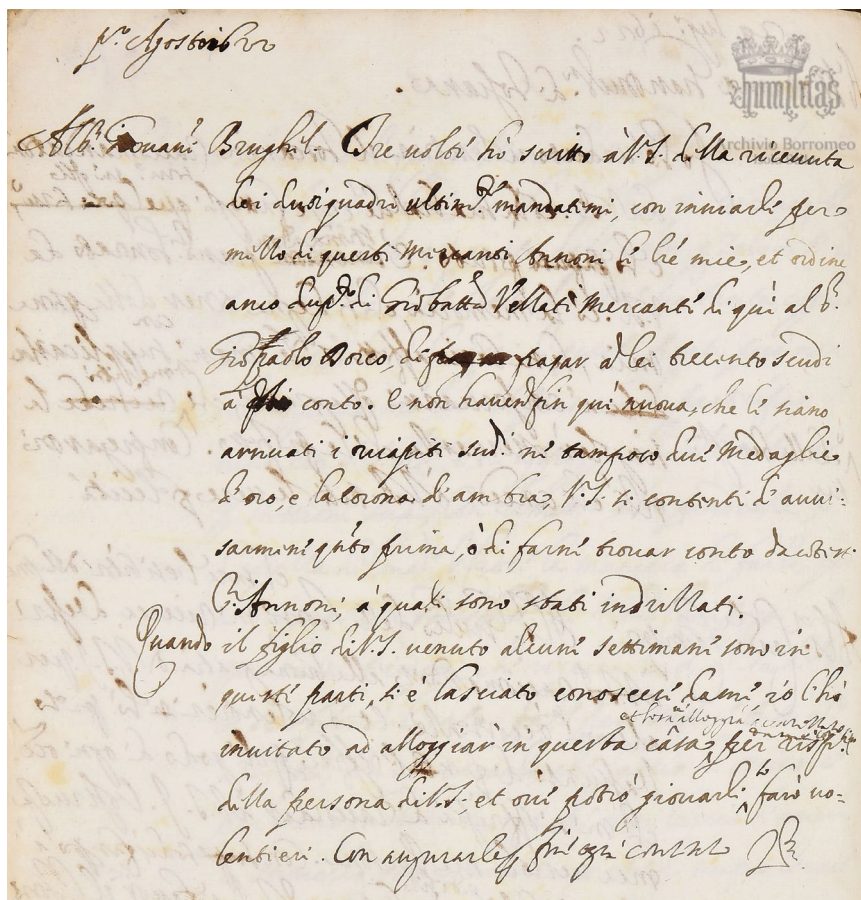 pº Agosto 1622
humilitas
Archivio Borromeo
Al Sr. Giovani Brughel. Tre volte ho scritto à V.S. della ricevuta
dei dusi quadri ultimte mandatemi, con inviarle per
mezzo di questi Mercanti Annoni le tre mie, et ordine
anco di Giobatta Vellati Mercante di qui al Sr.
Gio Paolo Dorco, di pagar à lei trecento scudi
à conto. E non havendo fin qui nuova, che le siano
arrivati i ricapiti sudi. né tampoco due Medaglie
d'oro, e la corona di ambra, V.S. si contenti d'avvi-
sarmene qnto prima, ò di farne trovar conto da cotesti
Sri. Annoni, à quali sono stati indrizzati.
Quando il figlio di V.S. venuto alcune settimane sono in
queste parti, si è lasciato conoscere da me, io l'hò
et sarà alloggiato
invitato ad alloggiar in questa casa, per rispto.
della persona di V.S., et ove potrò giovarli, lo farò vo-
lentieri. Con augurarle per fine ogni contento